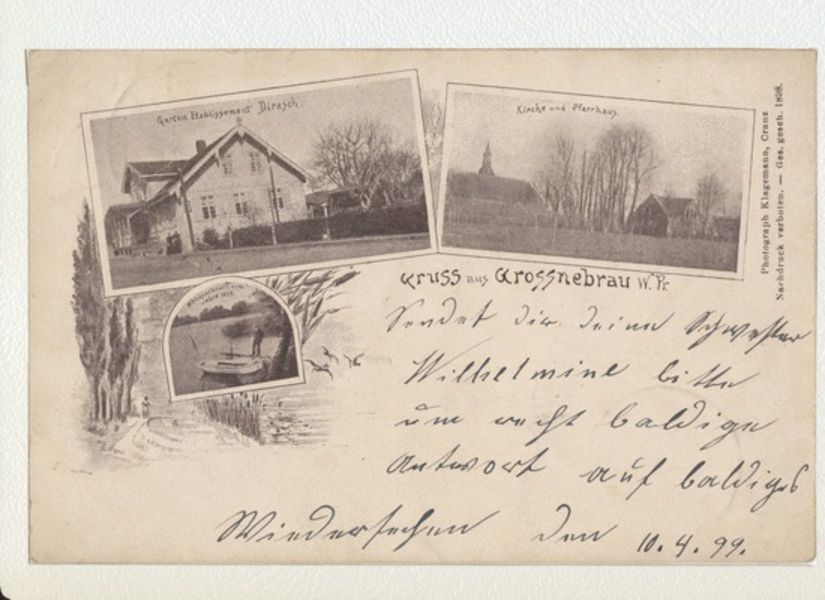 Garten Etablissement Dirasch.
Kirche und Pfarrhaus.
Photograph Klagemann, Cranz
Nachdruck verboten. — Ges. gesch. 1898.
Gruss aus Grossnebrau W. Pr
Sendet dir deine Schwester
Wilhelmine bitte
um recht baldige
Antwort auf baldiges
Wiedersehen den 10.4.99.